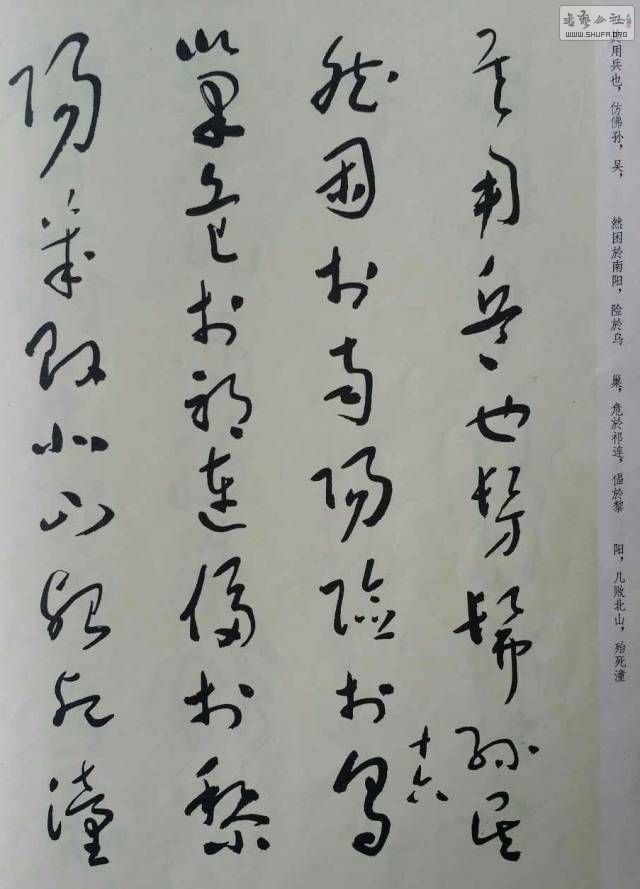 其用兵也髣髴孫吴
然困於南陽險於烏
十六
巢危於祁連偪於黎
陽幾敗北山殆死潼
其用兵也，仿佛孙，吴，
然困於南阳，险於乌
巢，危於祁连，偪於黎
阳，几败北山，殆死潼
书艺公社
WWW.SHUFA.ORG